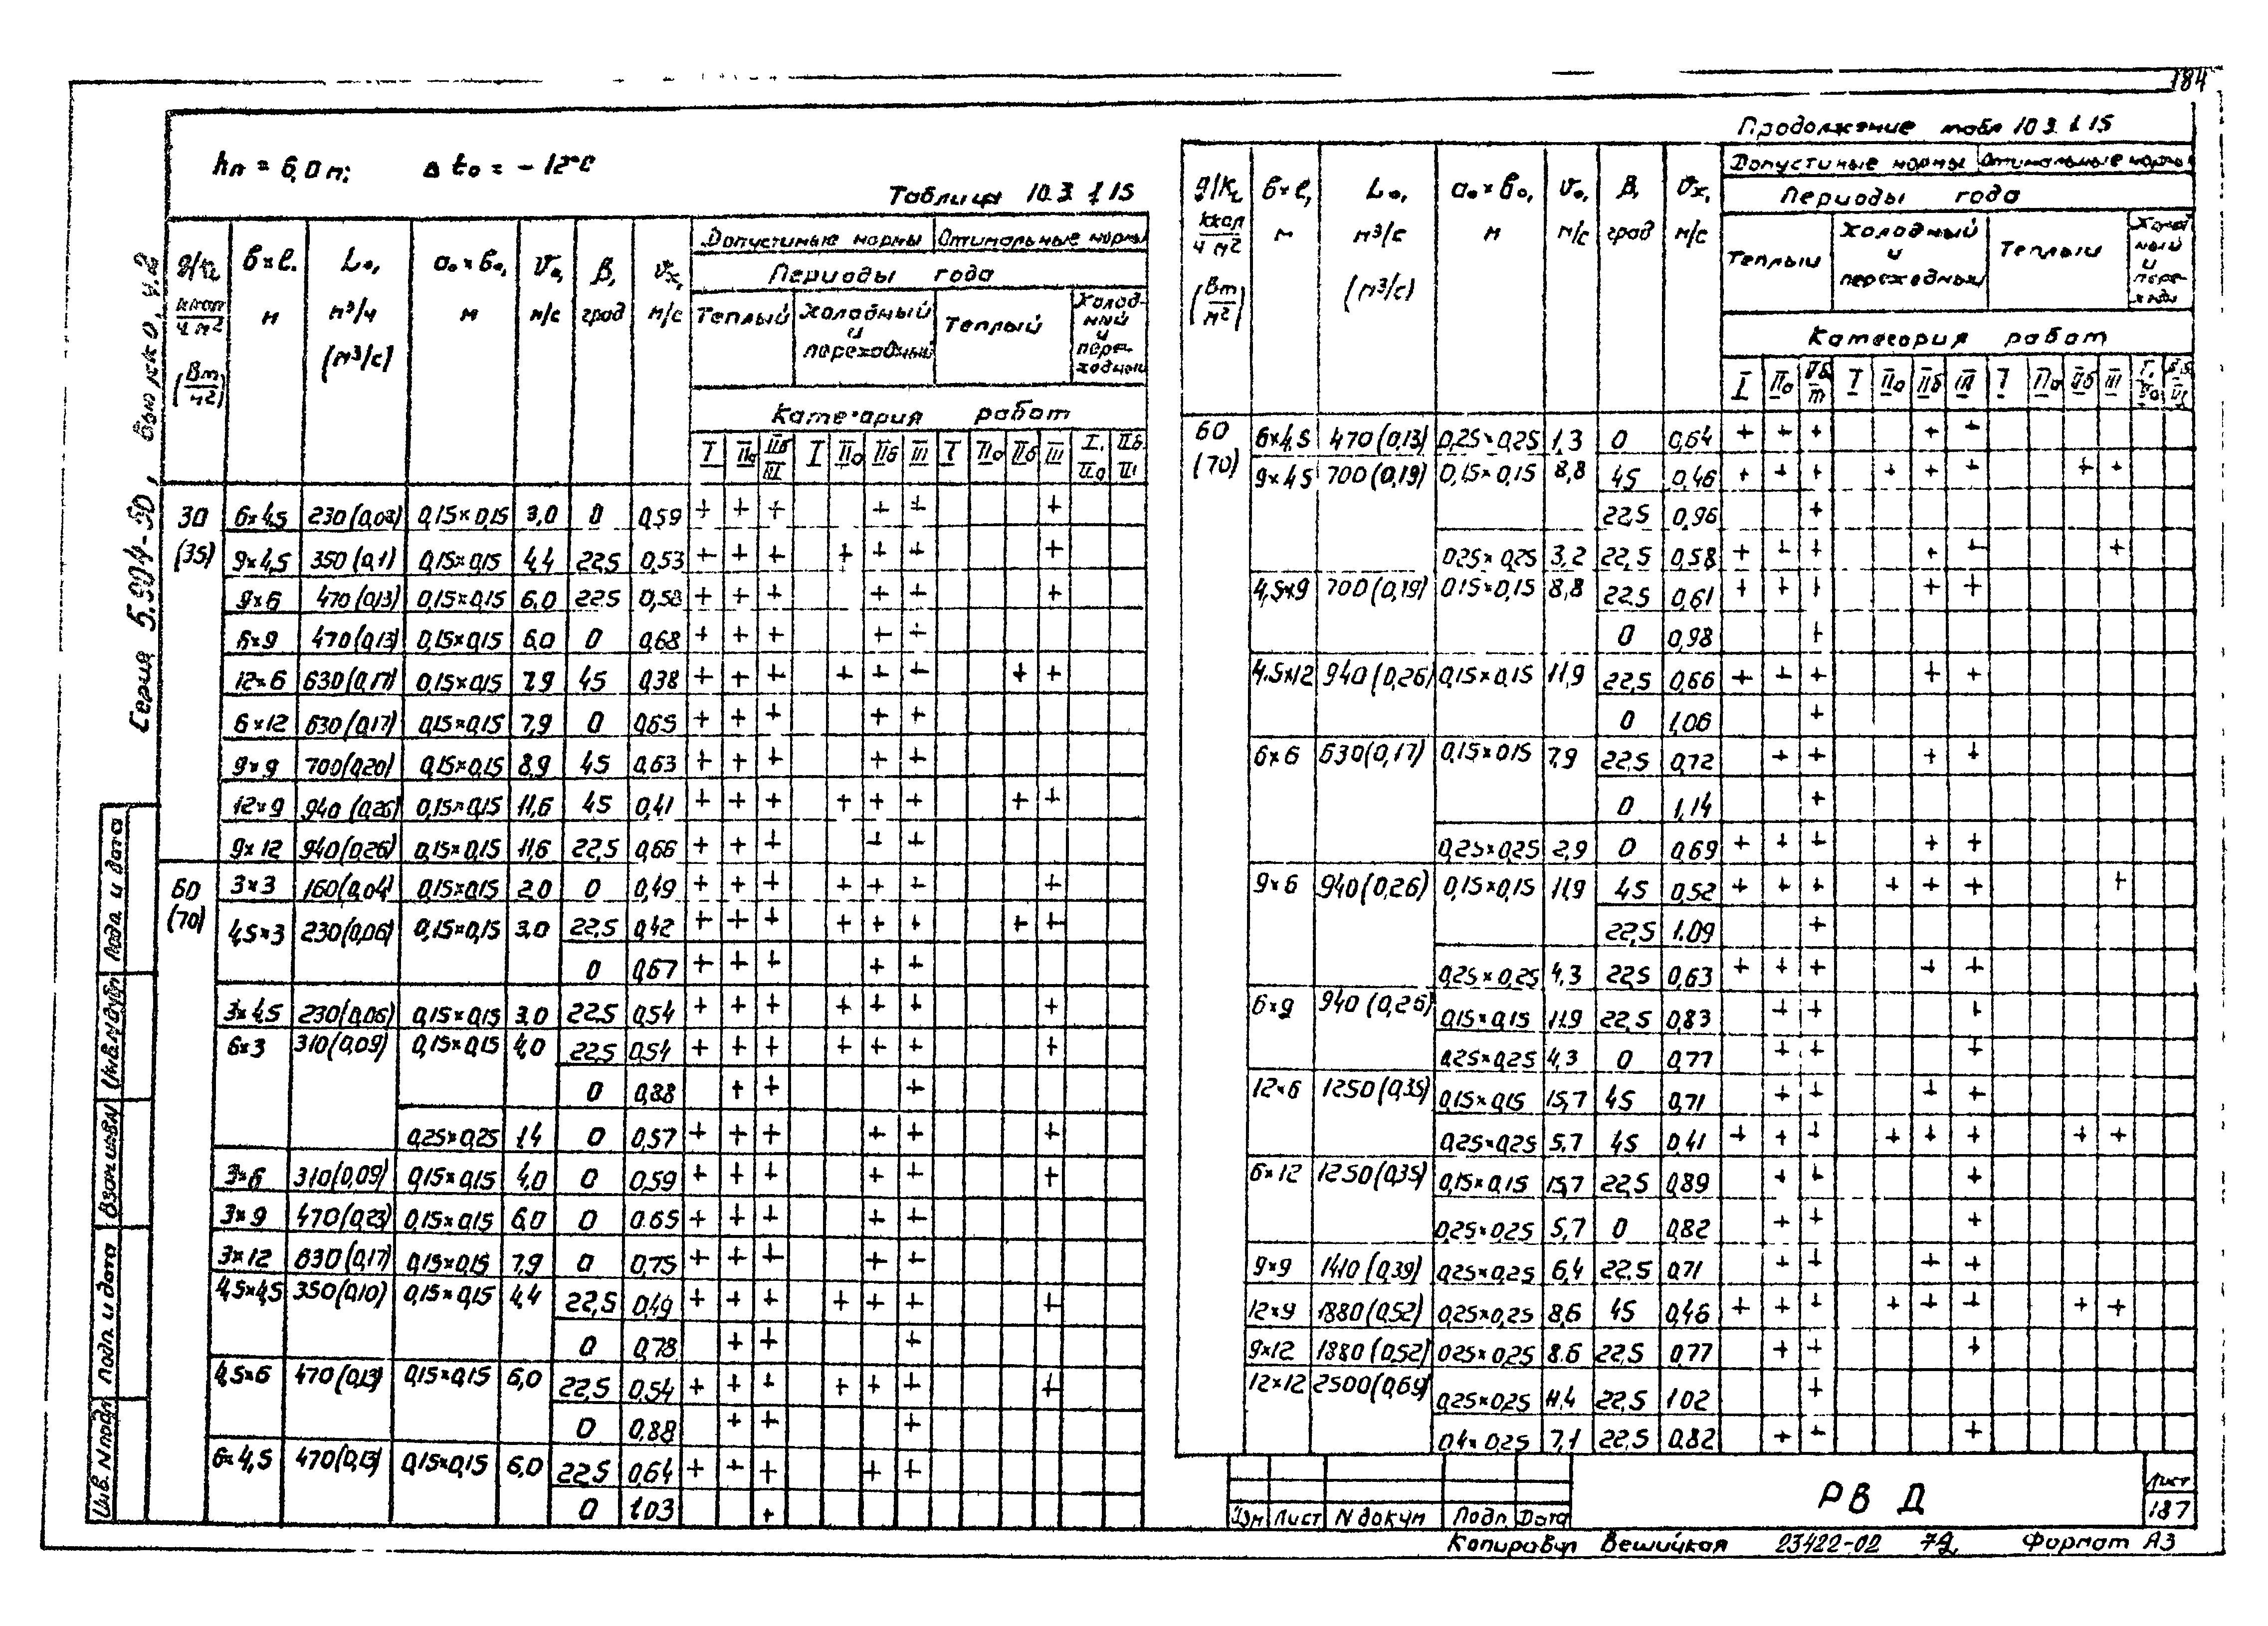 184
Серия 5.904-50, выпкО, ч.2
hп = 6,0 м; Δ to = -12°С
Таблица 10.3.1.15
g/Fс ккал/ч м2 (Вт/м2) | в×l, м | Lo, м³/ч (м³/с) | ao×bo, м | Vo, м/с | β, град | Vx, м/с
Допустимые нормы | Оптимальные нормы
Периоды года
Теплый | Холодный и переходный | Теплый | Холодный и переходный
Категория работ
I | IIа | IIб III | I | IIа | IIб | III | I | IIа | IIб | III | I, IIа | IIб, III
30 (35) | 6×4,5 | 230(0,03) | 0,15×0,15 | 3,0 | 0 | 0,59 | + + + + + +
9×4,5 | 350(0,1) | 0,15×0,15 | 4,4 | 22,5 | 0,53 | + + + + + + +
9×6 | 470(0,13) | 0,15×0,15 | 6,0 | 22,5 | 0,58 | + + + + + +
6×9 | 470(0,13) | 0,15×0,15 | 6,0 | 0 | 0,68 | + + + + +
12×6 | 630(0,17) | 0,15×0,15 | 7,9 | 45 | 0,38 | + + + + + + + +
6×12 | 630(0,17) | 0,15×0,15 | 7,9 | 0 | 0,65 | + + + + +
9×9 | 700(0,20) | 0,15×0,15 | 8,9 | 45 | 0,63 | + + + + +
12×9 | 940(0,26) | 0,15×0,15 | 11,6 | 45 | 0,41 | + + + + + + + +
9×12 | 940(0,26) | 0,15×0,15 | 11,6 | 22,5 | 0,66 | + + + + +
60 (70) | 3×3 | 160(0,04) | 0,15×0,15 | 2,0 | 0 | 0,49 | + + + + + + +
4,5×3 | 230(0,06) | 0,15×0,15 | 3,0 | 22,5 | 0,42 | + + + + + + + +
0 | 0,67 | + + + + +
3×4,5 | 230(0,06) | 0,15×0,15 | 3,0 | 22,5 | 0,54 | + + + + + + +
6×3 | 310(0,09) | 0,15×0,15 | 4,0 | 22,5 | 0,54 | + + + + + + +
0 | 0,88 | + + +
0,25×0,25 | 1,4 | 0 | 0,57 | + + + + + +
3×6 | 310(0,09) | 0,15×0,15 | 4,0 | 0 | 0,59 | + + + + + +
3×9 | 470(0,23) | 0,15×0,15 | 6,0 | 0 | 0,65 | + + + + +
3×12 | 630(0,17) | 0,15×0,15 | 7,9 | 0 | 0,75 | + + + + +
4,5×4,5 | 350(0,10) | 0,15×0,15 | 4,4 | 22,5 | 0,49 | + + + + + + +
0 | 0,78 | + + +
4,5×6 | 470(0,13) | 0,15×0,15 | 6,0 | 22,5 | 0,54 | + + + + + + +
0 | 0,88 | + + +
6×4,5 | 470(0,13) | 0,15×0,15 | 6,0 | 22,5 | 0,64 | + + + + +
0 | 1,03 | +
Продолжение табл 10.3.1.15
g/Fс ккал/ч м2 (Вт/м2) | в×l, м | Lo, м³/с (м³/с) | ao×bo, м | Vo, м/с | β, град | Vx, м/с
Допустимые нормы | Оптимальные нормы
Периоды года
Теплый | Холодный и переходный | Теплый | Холодный и переходн
Категория работ
I | IIа | IIб III | I | IIа | IIб | III | I | IIа | IIб | III | I, IIа | IIб, III
60 (70) | 6×4,5 | 470(0,13) | 0,25×0,25 | 1,3 | 0 | 0,64 | + + + + +
9×4,5 | 700(0,19) | 0,15×0,15 | 8,8 | 45 | 0,46 | + + + + + + + +
22,5 | 0,96 | +
0,25×0,25 | 3,2 | 22,5 | 0,58 | + + + + + +
4,5×9 | 700(0,19) | 0,15×0,15 | 8,8 | 22,5 | 0,61 | + + + + +
0 | 0,98 | +
4,5×12 | 940(0,26) | 0,15×0,15 | 11,9 | 22,5 | 0,66 | + + + + +
0 | 1,06 | +
6×6 | 630(0,17) | 0,15×0,15 | 7,9 | 22,5 | 0,72 | + + + +
0 | 1,14 | +
0,25×0,25 | 2,9 | 0 | 0,69 | + + + + +
9×6 | 940(0,26) | 0,15×0,15 | 11,9 | 45 | 0,52 | + + + + + + +
22,5 | 1,09 | +
0,25×0,25 | 4,3 | 22,5 | 0,63 | + + + + +
6×9 | 940(0,26) | 0,15×0,15 | 11,9 | 22,5 | 0,83 | + + +
0,25×0,25 | 4,3 | 0 | 0,77 | + + +
12×6 | 1250(0,35) | 0,15×0,15 | 15,7 | 45 | 0,71 | + + + +
0,25×0,25 | 5,7 | 45 | 0,41 | + + + + + + + +
6×12 | 1250(0,35) | 0,15×0,15 | 15,7 | 22,5 | 0,89 | + + +
0,25×0,25 | 5,7 | 0 | 0,82 | + + +
9×9 | 1410(0,39) | 0,25×0,25 | 6,4 | 22,5 | 0,71 | + + + +
12×9 | 1880(0,52) | 0,25×0,25 | 8,6 | 45 | 0,46 | + + + + + + + +
9×12 | 1880(0,52) | 0,25×0,25 | 8,6 | 22,5 | 0,77 | + + +
12×12 | 2500(0,69) | 0,25×0,25 | 11,4 | 22,5 | 1,02 | +
0,4×0,25 | 7,1 | 22,5 | 0,82 | + + +
Инв. N подл | Подп. и дата | Взам инв N | Инв. N дубл | Подп. и дата
Изм | Лист | N докум | Подп. | Дата
РВ Д
Лист
187
Копировал Вешицкая 23422-02 Формат А3